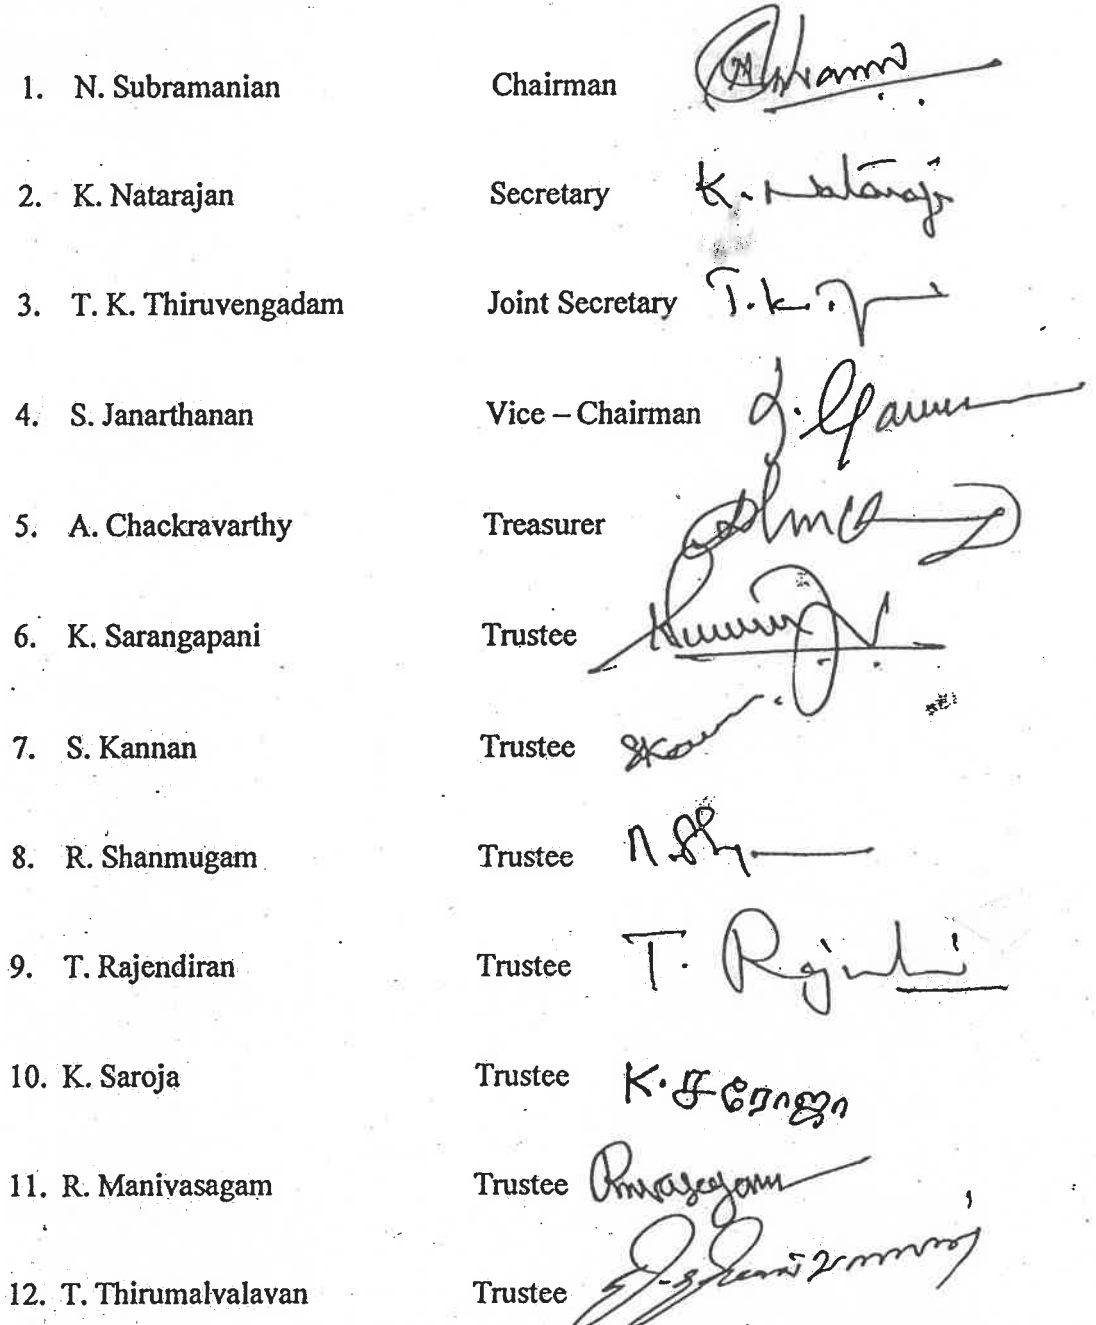 1. N. Subramanian Chairman
2. K. Natarajan Secretary K. Nataraj
3. T. K. Thiruvengadam Joint Secretary T.K.
4. S. Janarthanan Vice – Chairman
5. A. Chackravarthy Treasurer
6. K. Sarangapani Trustee
7. S. Kannan Trustee
8. R. Shanmugam Trustee
9. T. Rajendiran Trustee T.
10. K. Saroja Trustee K. சரோஜா
11. R. Manivasagam Trustee
12. T. Thirumalvalavan Trustee